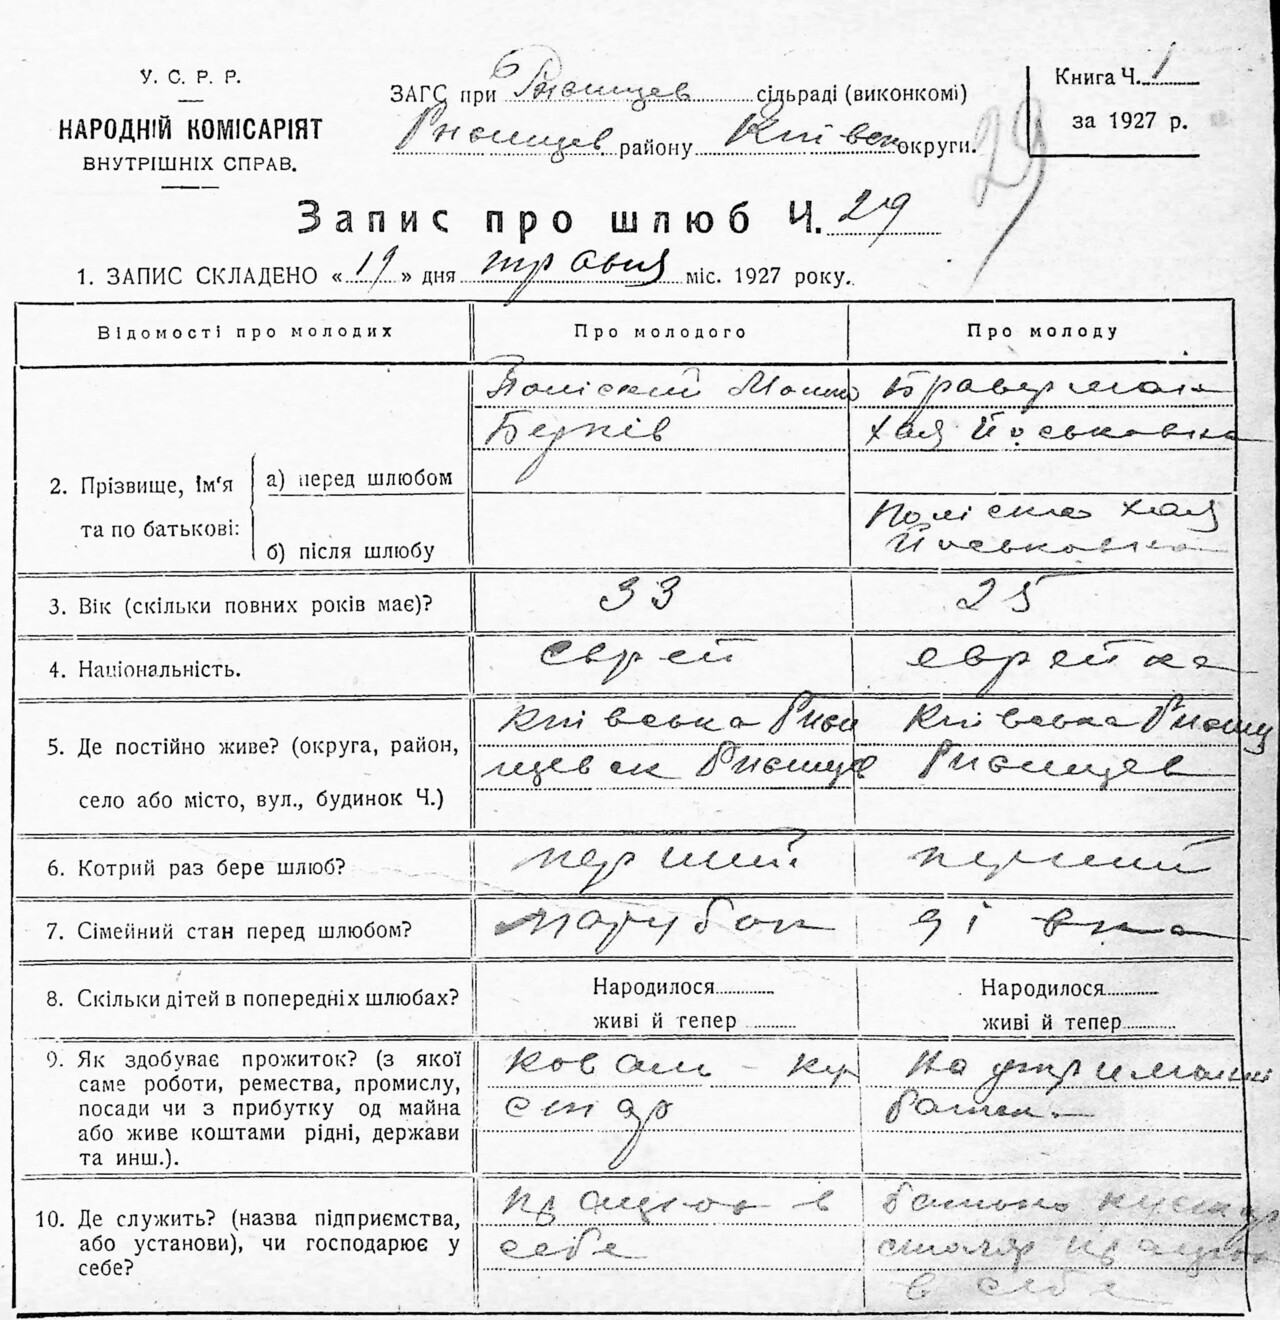 У. С. Р. Р.
НАРОДНІЙ КОМІСАРІЯТ
ВНУТРІШНІХ СПРАВ.
ЗАГС при Ржищев сільраді (виконкомі)
Ржищев району Київськ округи.
Книга Ч. 1
за 1927 р.
29
Запис про шлюб Ч. 29
1. ЗАПИС СКЛАДЕНО «19» дня травня міс. 1927 року.
Відомості про молодих
Про молодого
Про молоду
2. Прізвище, Ім'я та по батькові:
а) перед шлюбом
Поліский Мошко
Берків
Браверман
Хая Йоськовна
б) після шлюбу
Поліска Хая
Йоськовна
3. Вік (скільки повних років має)?
33
25
4. Національність.
Єврей
еврейка
5. Де постійно живе? (округа, район,
село або місто, вул., будинок Ч.)
Київська Ржи
щевск Ржищев
Київська Ржищ
Ржищев
6. Котрий раз бере шлюб?
перший
перший
7. Сімейний стан перед шлюбом?
парубок
дівка
8. Скільки дітей в попередніх шлюбах?
Народилося
живі й тепер
Народилося
живі й тепер
9. Як здобуває прожиток? (з якої
саме роботи, ремества, промислу,
посади чи з прибутку од майна
або живе коштами рідні, держави
та инш.).
Коваль - ку
стар
На утриманні
батьк.
10. Де служить? (назва підприємства,
або установи), чи господарює у
себе?
працює в
себе
батько кустар
столяр працює
в себе